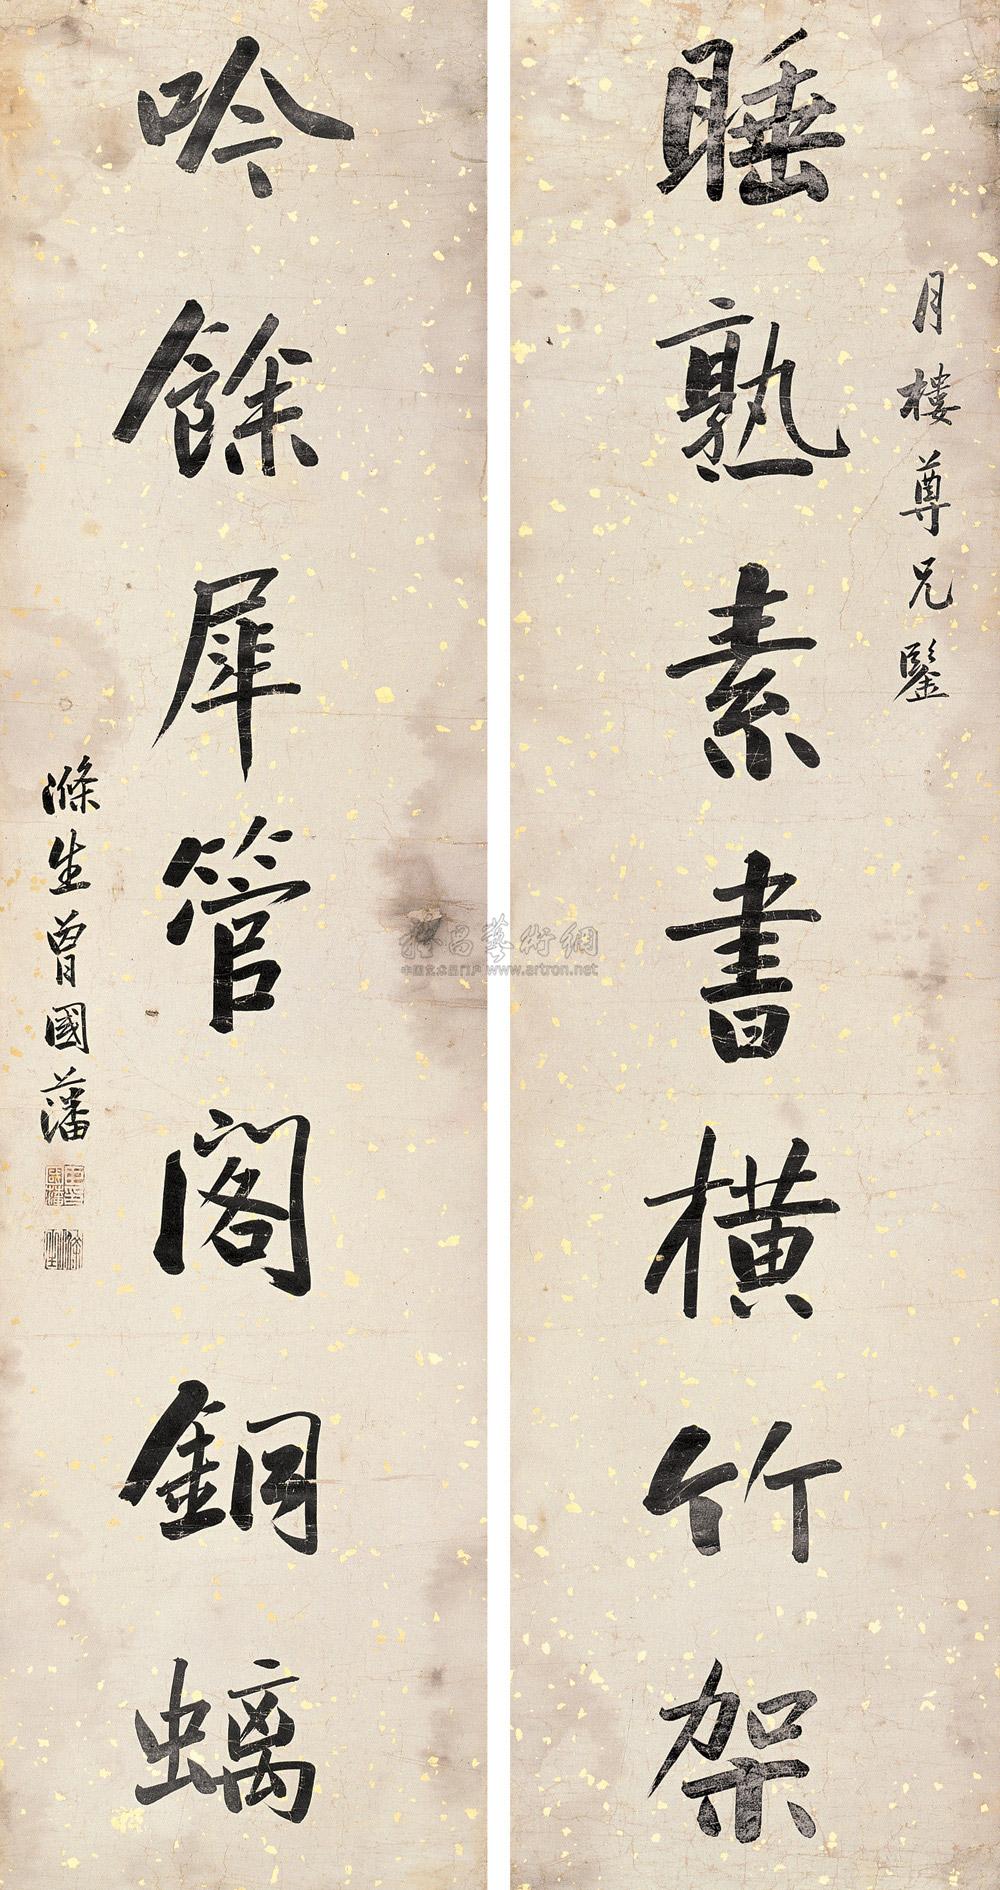 月樓尊兄鑒
睡熟素書橫竹架
吟餘犀管閣銅螭
滌生曾國藩
中国艺术品门户 www.artron.net